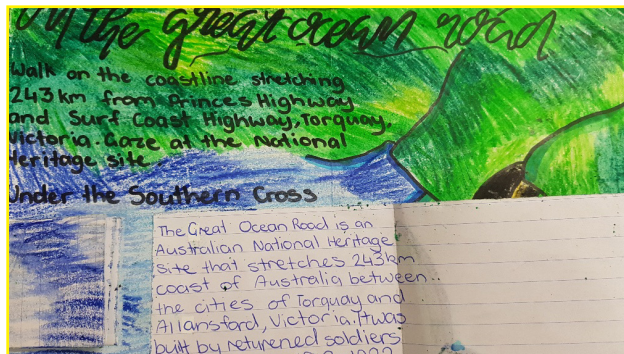 the great ocean road
Walk on the coastline stretching
243km from Princes Highway
and Surf Coast Highway, Torquay,
Victoria. Gaze at the National
Heritage site
Under the Southern Cross
The Great Ocean Road is an
Australian National Heritage
site that stretches 243km
coast of Australia between
the cities of Torquay and
Allansford, Victoria. It was
built by returened soldiers